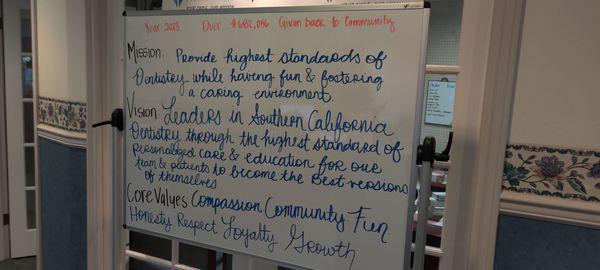 Year 2023 Over $682,086 Given back to Community
Mission: Provide highest standards of
Dentistry while having fun & fostering
a caring environment.
Vision Leaders in Southern California
Dentistry through the highest standard of
personalized care & education for our
team & patients to become the Best versions
of themselves
Core Values Compassion Community Fun
Honesty Respect Loyalty Growth